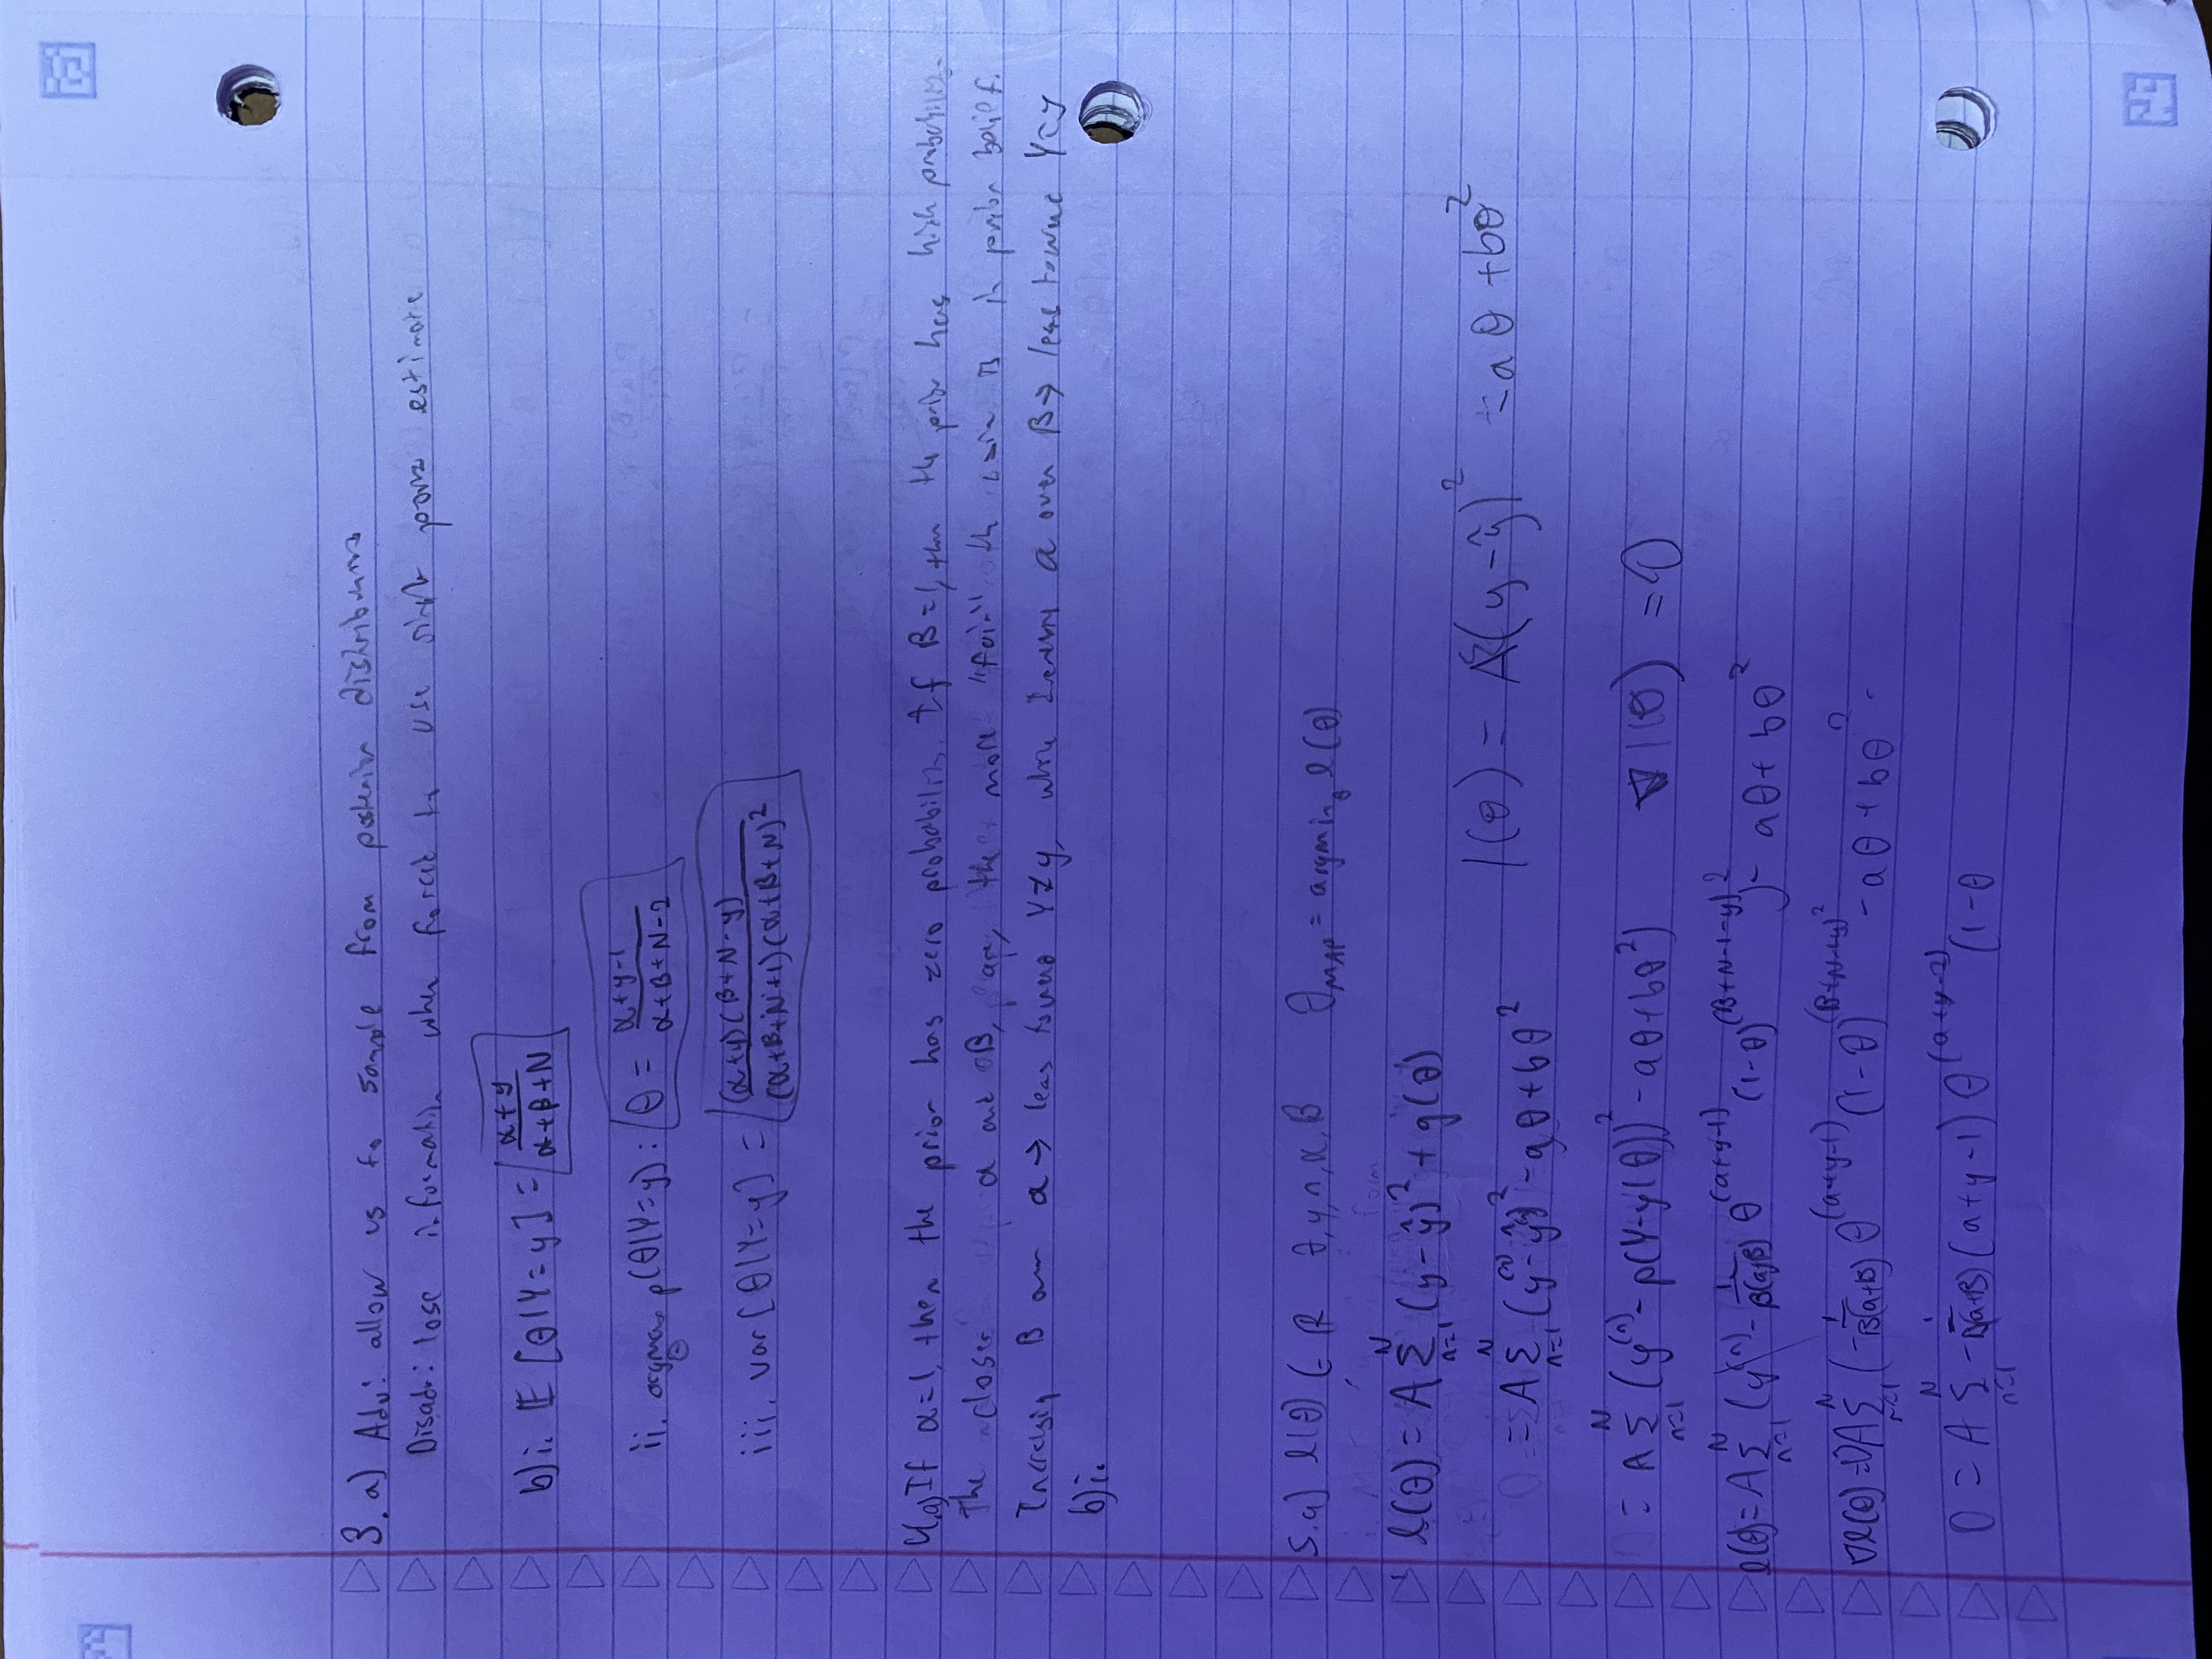 3. a) Adv: allow us to sample from posterior distributions
Disadv: lose information when forced to use single point estimate
b) i. 𝔼 [θ|Y=y] = (α+y)/(α+β+N)
ii. argmax_θ p(θ|Y=y) : θ = (α+y-1)/(α+β+N-2)
iii. var[θ|Y=y] = (α+y)(β+N-y)/((α+β+N+1)(α+β+N)²)
4.a) If α=1, then the prior has zero probability. If β=1, then the prior has high probability.
The closer α and β, are, the more "fair" the coin is in prior belief.
Increasing β over α → leas toward Y≠y, while α over β → leas toward Y=y
b) i.
5.a) ℓ(θ) ∈ ℝ θ, y, n, α, β θ_MAP = argmin_θ ℓ(θ)
ℓ(θ) = A Σ_{n=1}^N (y-ŷ)² + g(θ)
= A Σ_{n=1}^N (y^(n) - ŷ^(n))² - aθ + bθ²
l(θ) = AΣ(y-ŷ)² = aθ + bθ²
= A Σ_{n=1}^N (y^(n) - p(Y=y|θ))² - aθ + bθ²)
∇l(θ) = 0
ℓ(θ) = A Σ_{n=1}^N (y^(n) - 1/B(a,β) θ^(a+y-1) (1-θ)^(β+N-1-y))² - aθ + bθ²
∇ℓ(θ) = ∇A Σ_{n=1}^N (-1/B(a+β) θ^(a+y-1) (1-θ)^(β+N-1-y)² - aθ + bθ²
0 = A Σ_{n=1}^N -1/B(a+β) (a+y-1) θ^(a+y-2) (1-θ